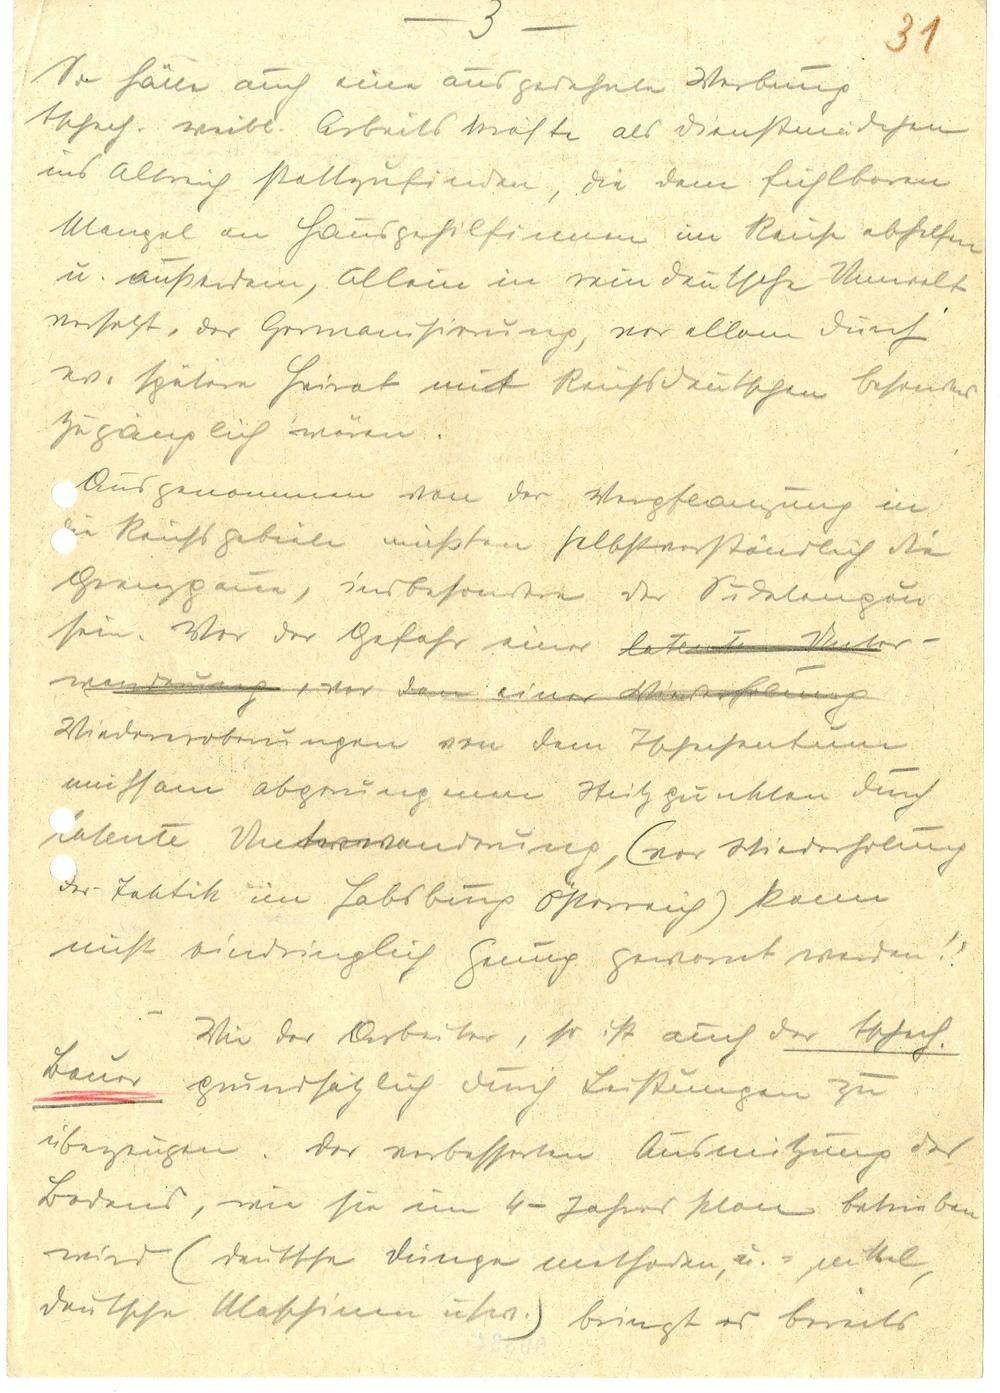 — 3 —
31
So hätte auch eine ausgedehnte Werbung
tschech. weibl. Arbeitskräfte als Dienstmädchen
ins Altreich stattzufinden, die dem fühlbaren
Mangel an Hausgehilfinnen im Reich abhelfen
u. außerdem, allein in rein deutsche Umwelt
versetzt, der Germanisierung, vor allem durch
ev. spätere Heirat mit Reichsdeutschen besonders
zugänglich wären.
Ausgenommen von der Verpflanzung in
die Reichsgebiete müßten selbstverständlich die
Grenzgaue, insbesondere der Sudetengau
sein. Vor der Gefahr einer latente Unter-
wanderung, vor dem einer Wiederholung
Wiedereroberungen von dem Tschechentum
mühsam abgerungenen Stützpunkten durch
latente Unterwanderung, (vor Wiederholung
der Taktik im Habsburg Österreich) kann
nicht eindringlich genug gewarnt werden!!
– Wie der Arbeiter, so ist auch der tschech.
Bauer grundsätzlich durch Leistungen zu
überzeugen. Der verbesserten Ausnützung des
Bodens, wie sie im 4-Jahresplan betrieben
wird (deutsche Düngemethoden, u. = mittel,
deutsche Maschinen usw.) bringt er bereits